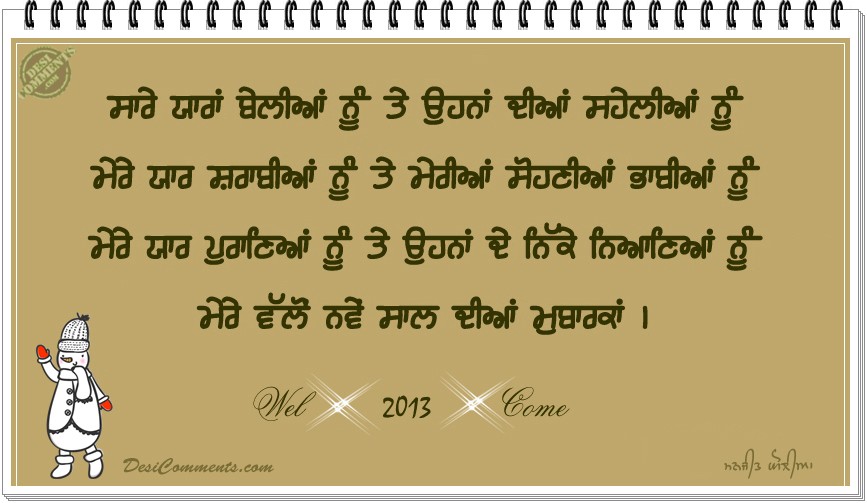 DESI
COMMENTS
.com
ਸਾਰੇ ਯਾਰਾਂ ਬੇਲੀਆਂ ਨੂੰ ਤੇ ਉਹਨਾਂ ਦੀਆਂ ਸਹੇਲੀਆਂ ਨੂੰ
ਮੇਰੇ ਯਾਰ ਸ਼ਰਾਬੀਆਂ ਨੂੰ ਤੇ ਮੇਰੀਆਂ ਸੋਹਣੀਆਂ ਭਾਬੀਆਂ ਨੂੰ
ਮੇਰੇ ਯਾਰ ਪੁਰਾਣਿਆਂ ਨੂੰ ਤੇ ਉਹਨਾਂ ਦੇ ਨਿੱਕੇ ਨਿਆਣਿਆਂ ਨੂੰ
ਮੇਰੇ ਵੱਲੋਂ ਨਵੇਂ ਸਾਲ ਦੀਆਂ ਮੁਬਾਰਕਾਂ ।
Wel 2013 Come
DesiComments.com
ਮਨਜੀਤ